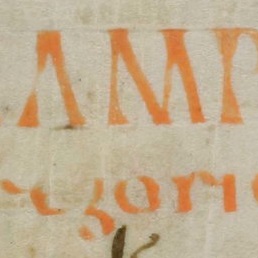 AMP
egorii